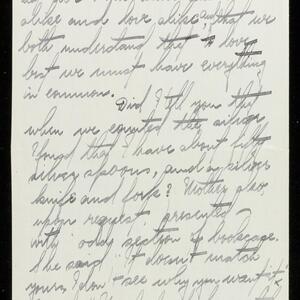 alike and love alike and that we
both understand that to love
but we must have everything
in common.
Did I tell you that
when we counted the silver
I found that I have about fifty
silver spoons, and a silver
knife and fork? Mother also
upon request presented
odd section of bookcase.
She said "it doesn't match
yours, I don't see why you want it"